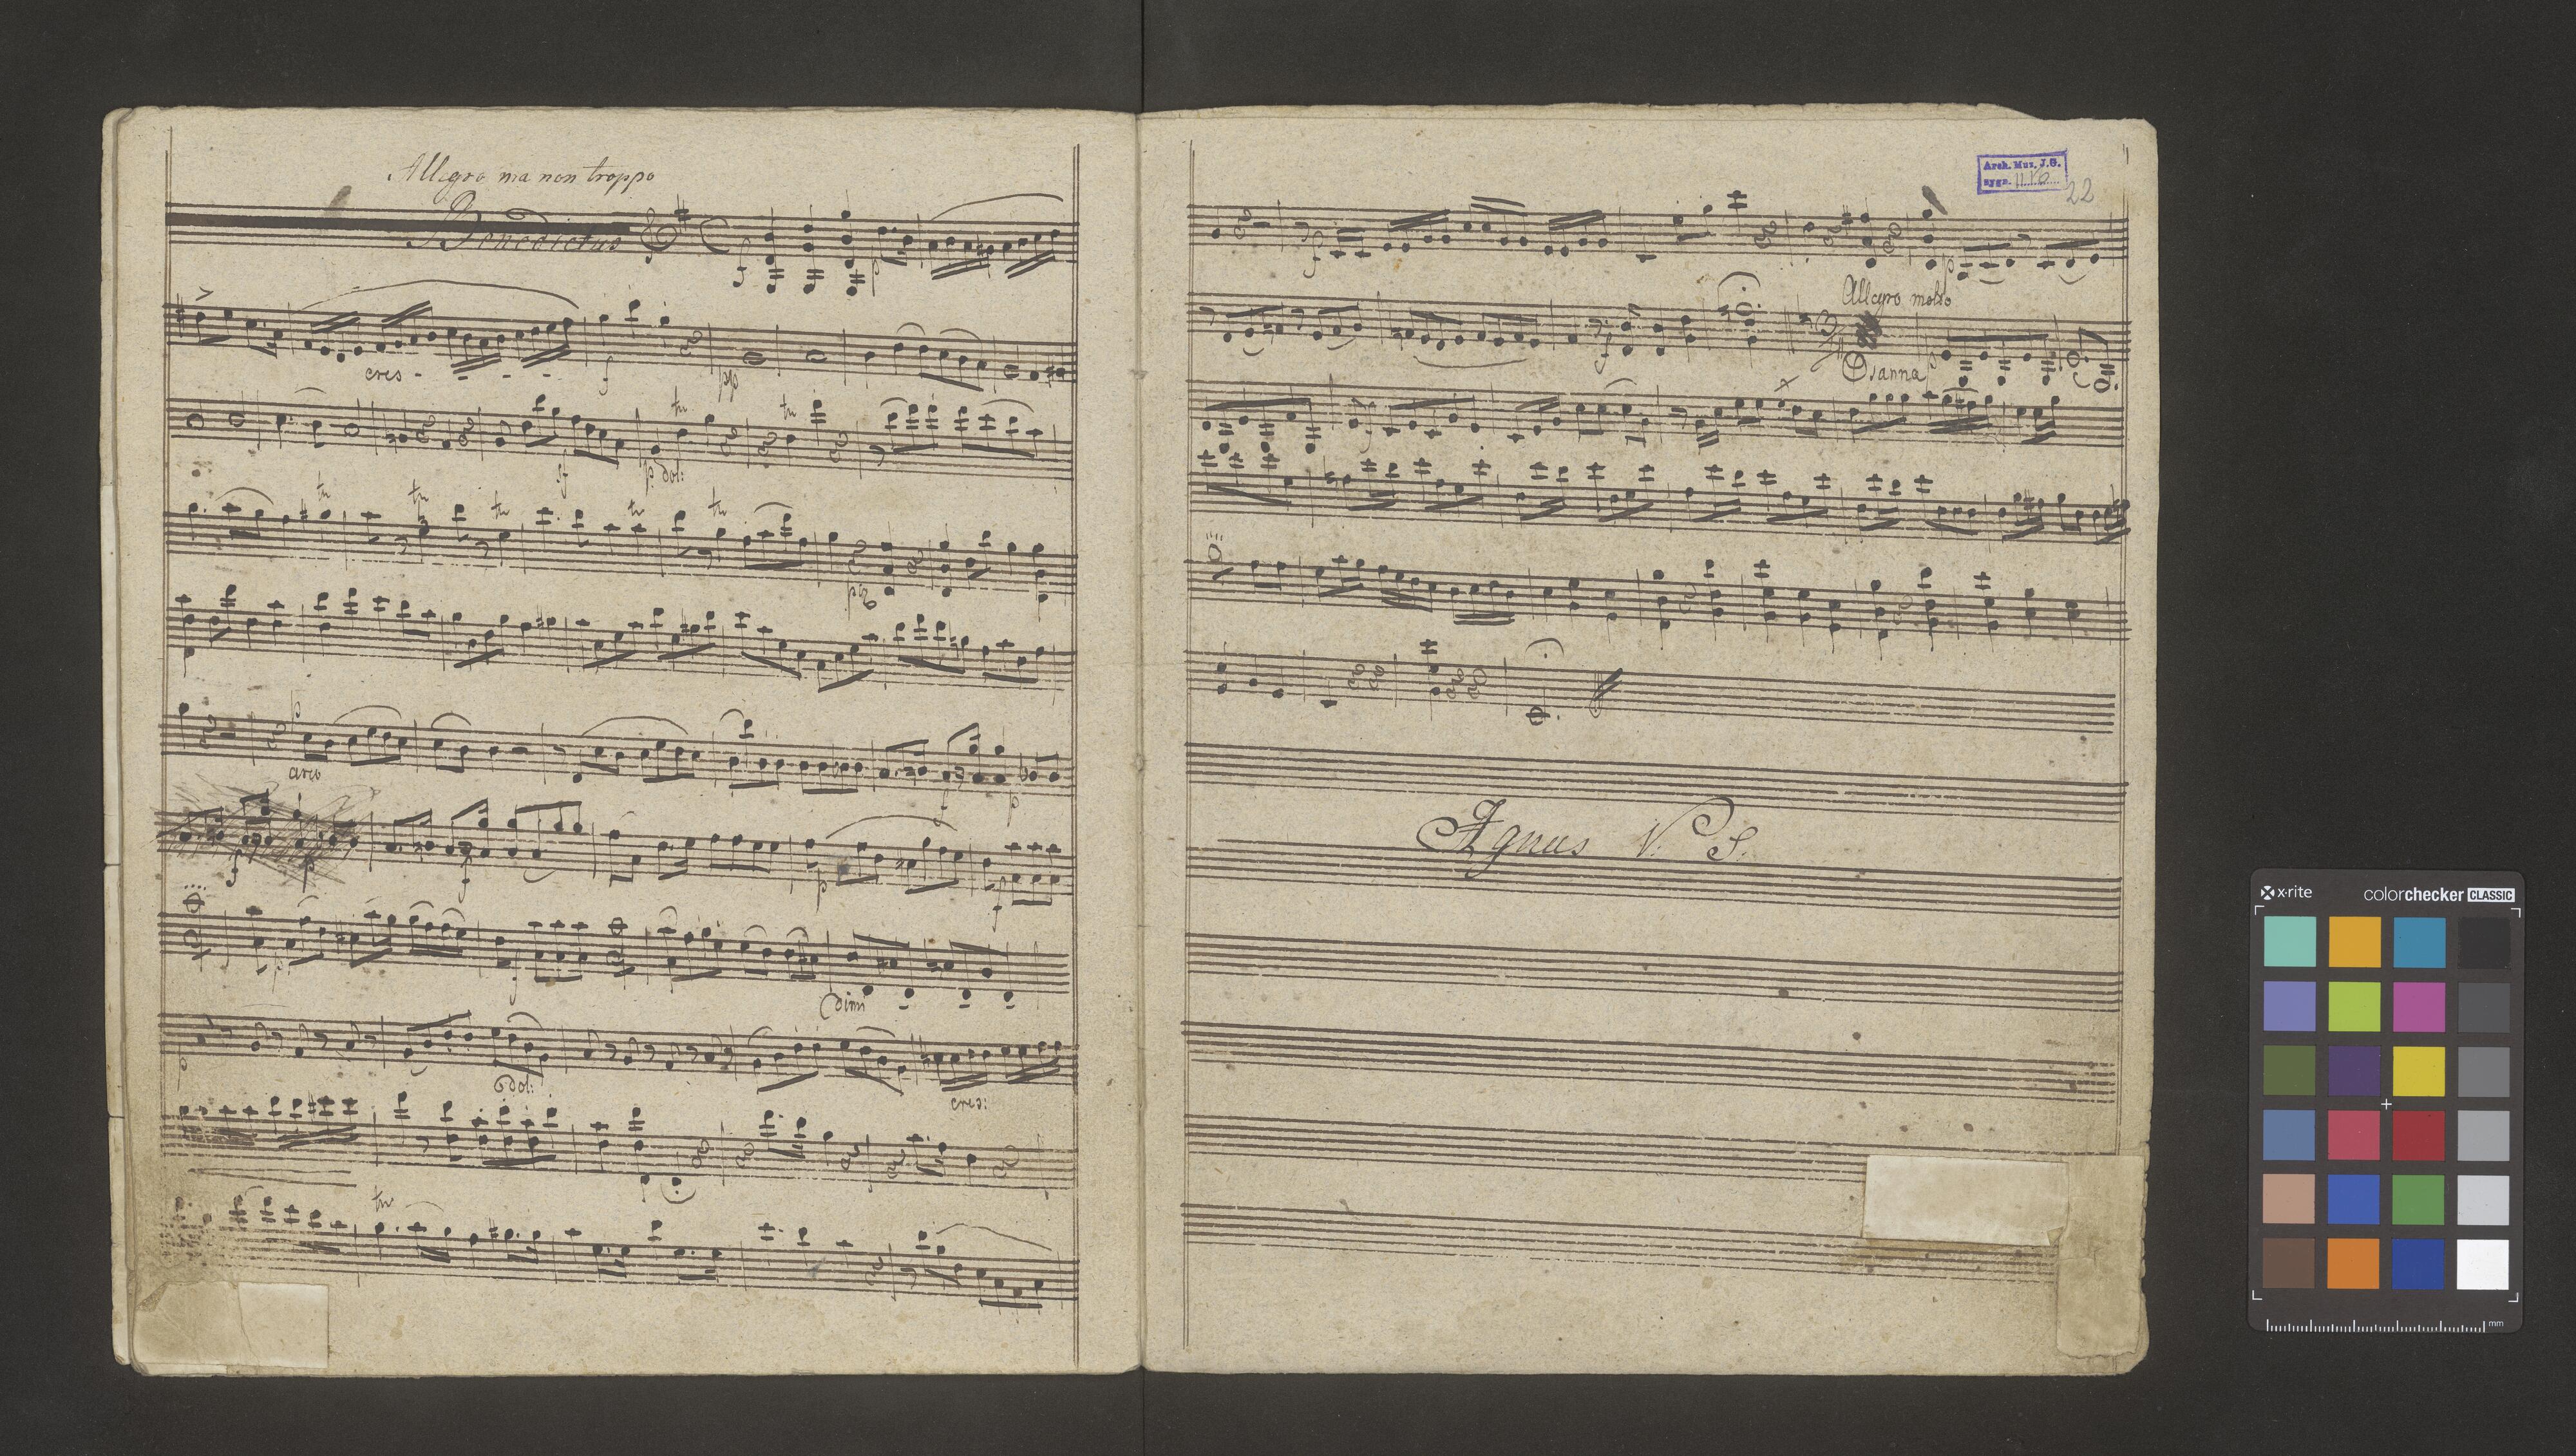 Allegro ma non troppo
Benedictus
f
p
cres - - - -
f
pp
sf
p. dol:
tr
tr
tr
tr
tr
tr
tr
piz
p
arco
f
p
f
p
f
p
f
p
f
dimi
p
dol:
cres:
tr
Arch. Muz. J.G.
sygn. II.16
22
f
p
Allegro molto
f
Osanna
p
f
Agnus V. S.
x-rite
colorchecker CLASSIC
mm